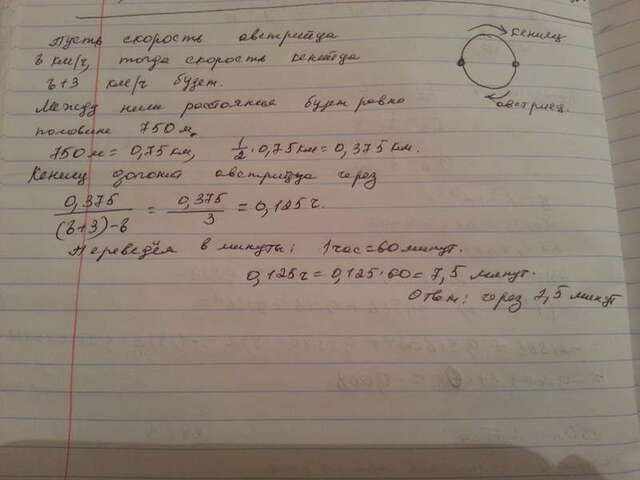 Пусть скорость австрийца
в км/ч, тогда скорость кенийца
в+3 км/ч будет.
Между ними расстояние будет равно
половине 750 м.
750 м = 0,75 км, 1/2 · 0,75 км = 0,375 км.
Кениец догонит австрийца через
0,375/((в+3)-в) = 0,375/3 = 0,125 ч.
Переведём в минуты: 1 час = 60 минут.
0,125 ч = 0,125 · 60 = 7,5 минут.
Ответ: через 7,5 минут
кениец
австриец.